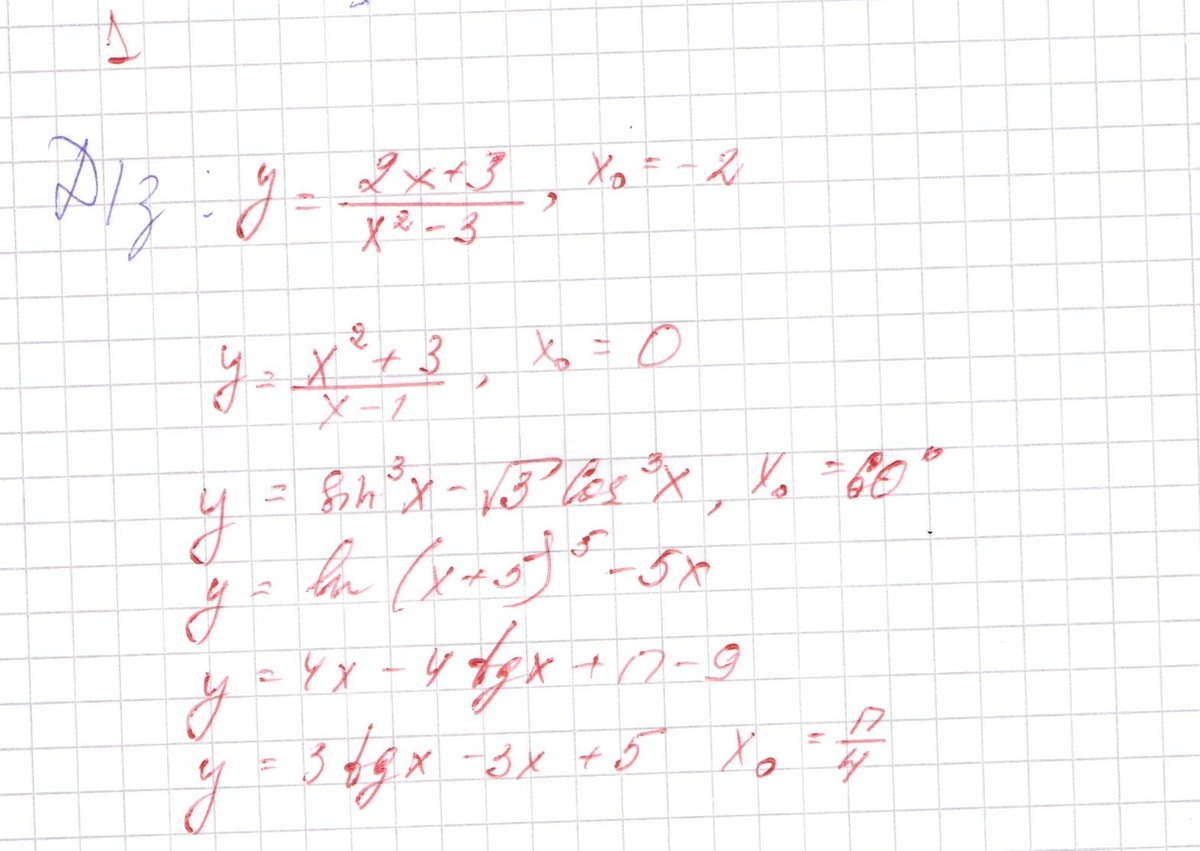 1
Д/з: y = (2x+3)/(x²-3), x₀ = -2
y = (x²+3)/(x-1), x₀ = 0
y = sin³x - √3 cos³x, x₀ = 60°
y = ln (x+5)⁵ - 5x
y = 4x - 4tgx + π - 9
y = 3tgx - 3x + 5 x₀ = π/4